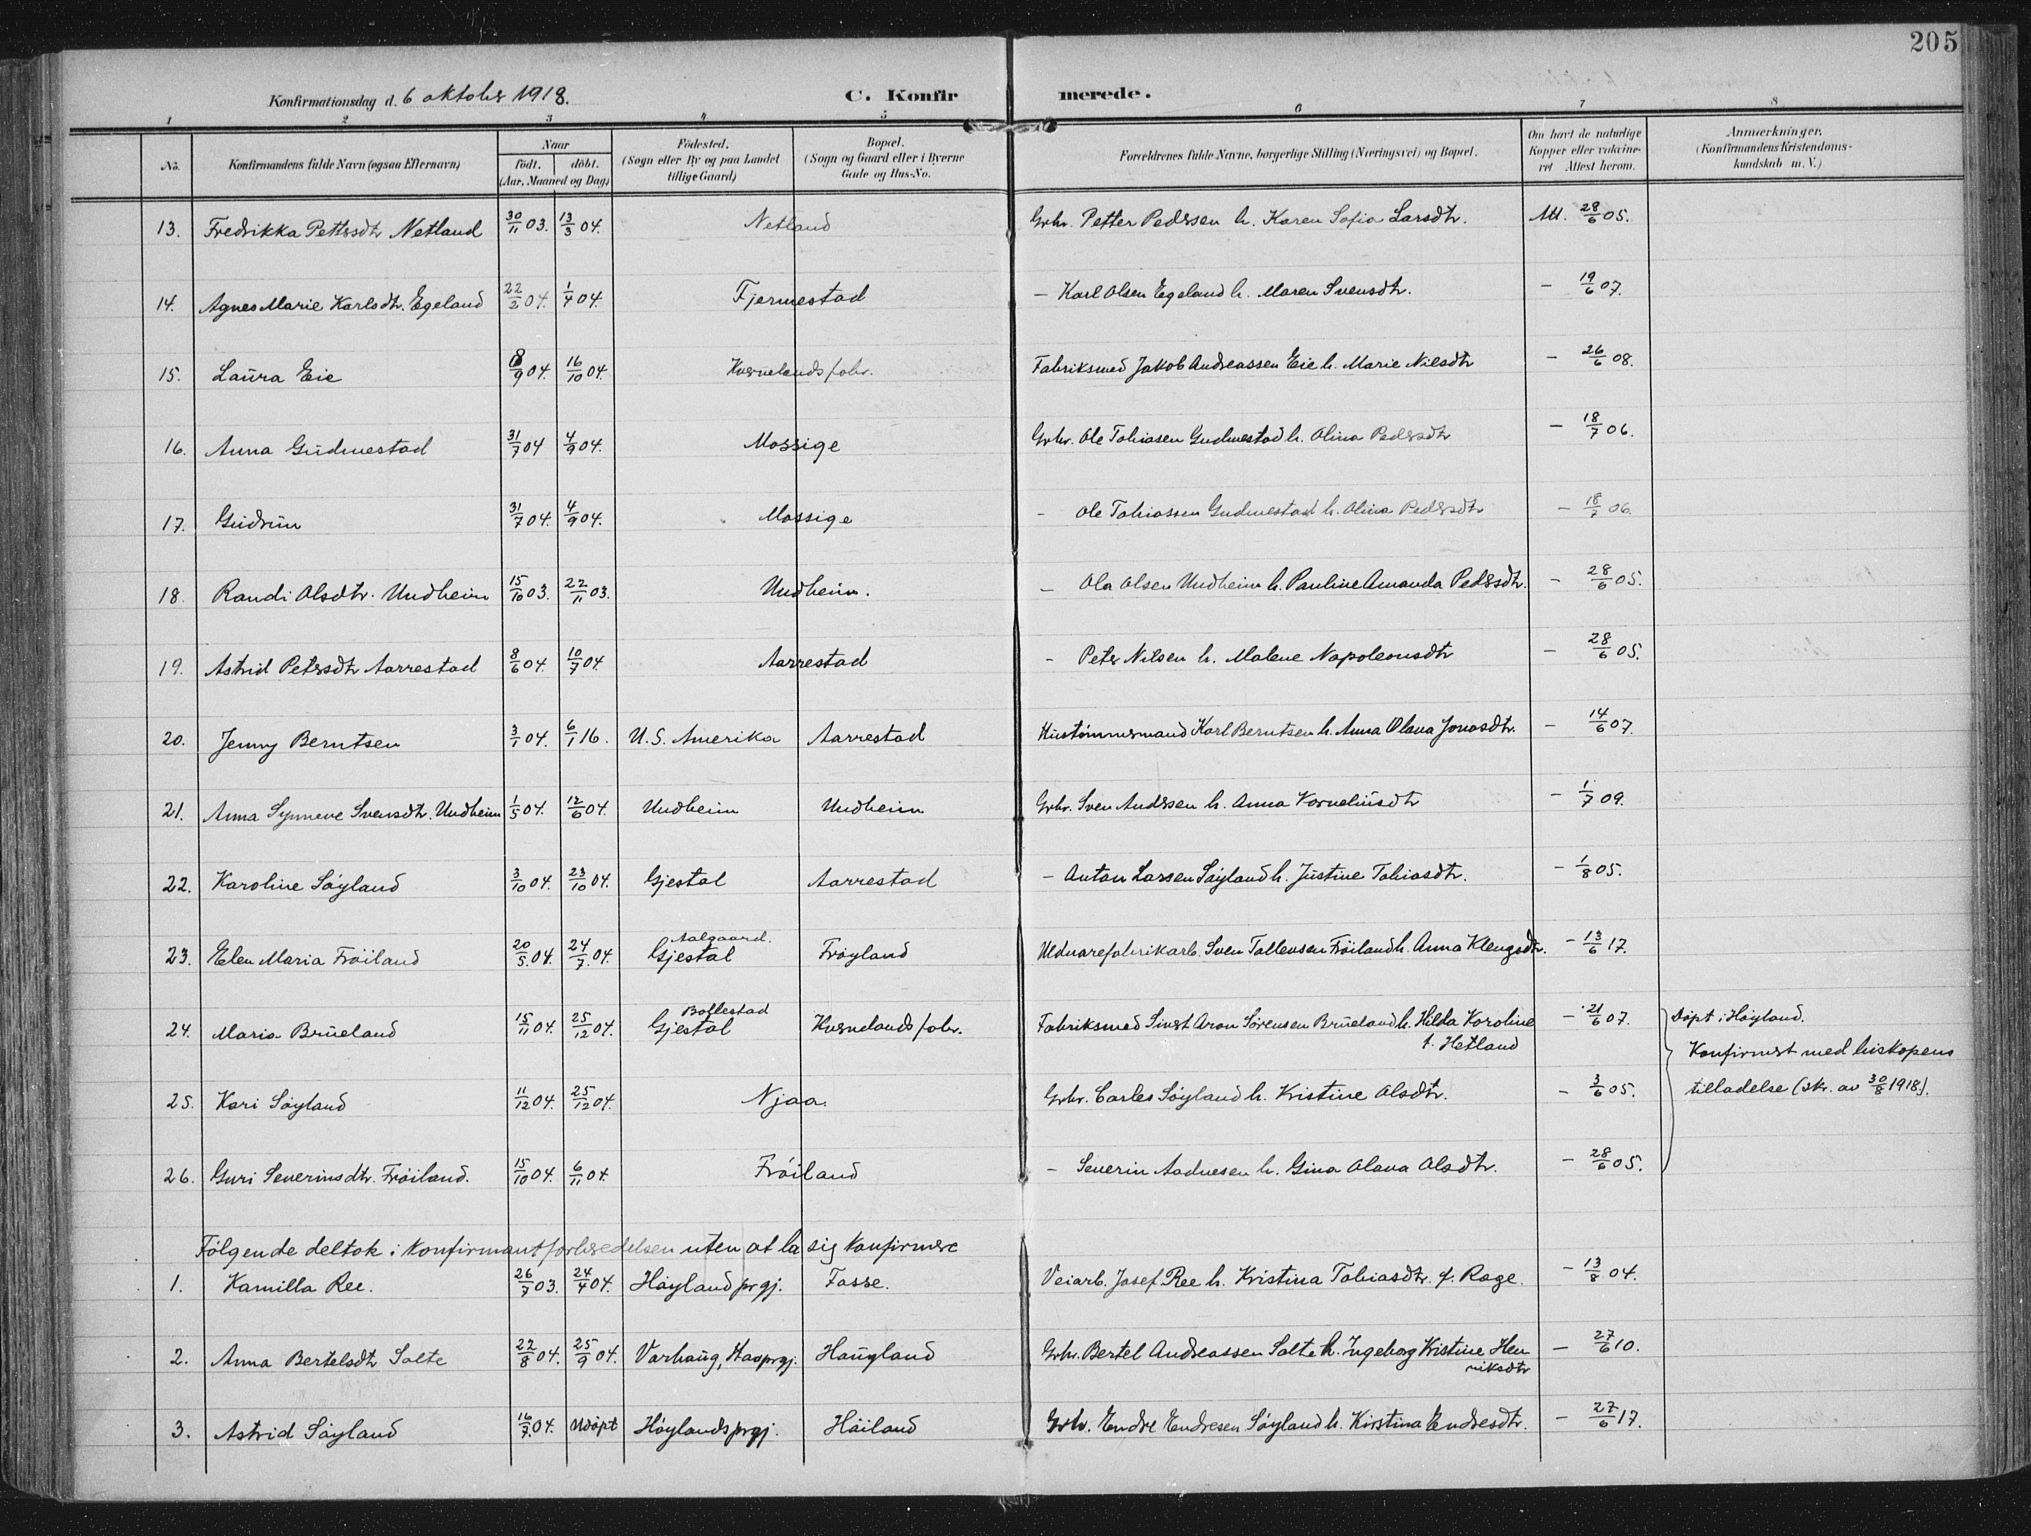 205
Konfirmationsdag d. 6 oktober 1918. C. Konfirmerede.
1 2 3 4 5 6 7 8
No. Konfirmandens fulde Navn (ogsaa Efternavn) Naar født, døbt. (Aar, Maaned og Dag) Fødested. (Sogn eller By og paa Landet tillige Gaard) Bopæl. (Sogn og Gaard eller i Byerne Gade og Hus-No. Forældrenes fulde Navne, borgerlige Stilling (Næringsvei) og Bopæl. Om havt de naturlige Kopper eller vakcineret Attest herom. Anmærkninger. (Konfirmandens Kristendomskundskab m. V.)
13. Fredrikka Pettersdtr Netland 30/11 03. 13/3 04. Netland Grbr. Petter Pedersen h. Karen Sofia Larsdtr. Att. 28/6 05.
14. Agnes Marie Karlsdtr. Egeland 22/2 04. 1/4 04. Fjermestad – Karl Olsen Egeland h. Maren Svensdtr. – 19/6 07.
15. Laura Eie 18/9 04. 16/10 04. Kvernelands fabr. Fabriksmed Jakob Andreassen Eie h. Marie Nilsdtr – 26/6 08.
16. Anna Gudmestad 31/7 04 4/9 04. Mossige Grbr. Ole Tobiasen Gudmestad h. Olina Pedersdtr – 18/7 06.
17. Gudrun 31/7 04. 4/9 04. Mossige – Ole Tobiassen Gudmestad h. Olina Pedersdtr – 18/7 06.
18. Randi Olsdtr. Undheim 15/10 03. 22/11 03. Undheim. – Ola Olsen Undheim h. Pauline Amanda Pedersdtr. – 28/6 05.
19. Astrid Petersdtr Aarrestad 8/6 04. 10/7 04 Aarrestad – Peter Nilsen h. Malene Napoleonsdtr – 28/6 05.
20. Jenny Berntsen 3/1 04. 6/1 16. U.S. Amerika Aarrestad Hustømmermand Karl Berntsen h. Anna Olava Jonasdtr. – 14/6 07.
21. Anna Synneve Svensdtr. Undheim 1/5 04. 12/6 04. Undheim Undheim Grbr. Sven Andersen h. Anna Korneliusdtr – 1/7 09.
22. Karoline Søyland 3/10 04. 23/10 04. Gjestal Aarrestad – Anton Larsen Søyland h. Justine Tobiasdtr. – 1/8 05.
23. Elen Maria Frøiland 20/5 04. 24/7 04. Aalgaard. Gjestal Frøyland Uldvarefabrikarb. Sven Tallevsen Frøiland h. Anna Klengsdtr. – 13/6 17.
24. Maria Brueland 15/11 04. 25/12 04. Bollestad Gjestal Kvernelands fabr. Fabriksmed Sivert Aron Sørensen Brueland h. Hilda Karoline f. Hetland – 21/6 07. Døpt i Høyland.
Konfirmert med biskopens
25. Kari Søyland 11/12 04. 25/12 04. Njaa. Grbr. Carles Søyland h. Kristine Olsdtr. – 3/6 05. tilladelse (skr. av 30/8 1918).
26. Guri Severinsdtr. Frøiland. 15/10 04. 6/11 04. Frøiland – Severin Aadnesen h. Gina Olava Olsdtr. – 28/6 05.
Følgende deltok i konfirmantforberedelsen uten at la sig konfirmere
1. Kamilla Ree. 26/7 03. 24/4 04. Høyland prgj. Fosse. Veiarb. Josef Ree h. Kristina Tobiasdtr. f. Rage. – 13/8 04.
2. Anna Bertelsdtr Salte 22/8 04. 25/9 04. Varhaug, Haaprgj. Haugland Grbr. Bertel Andreassen Salte h. Ingeborg Kristine Henriksdtr – 27/6 10.
3. Astrid Søyland 16/7 04. Udøpt Høylands prgj. Høiland Grbr. Endre Endresen Søyland h. Kirstina Endresdtr. – 27/6 17.